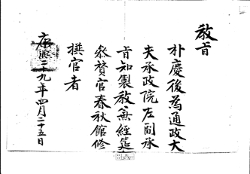 敎旨
朴慶後爲通政大
夫承政院左副承
旨知製敎兼經筵
參贊官春秋館修
撰官者
康熙二十九年四月二十五日